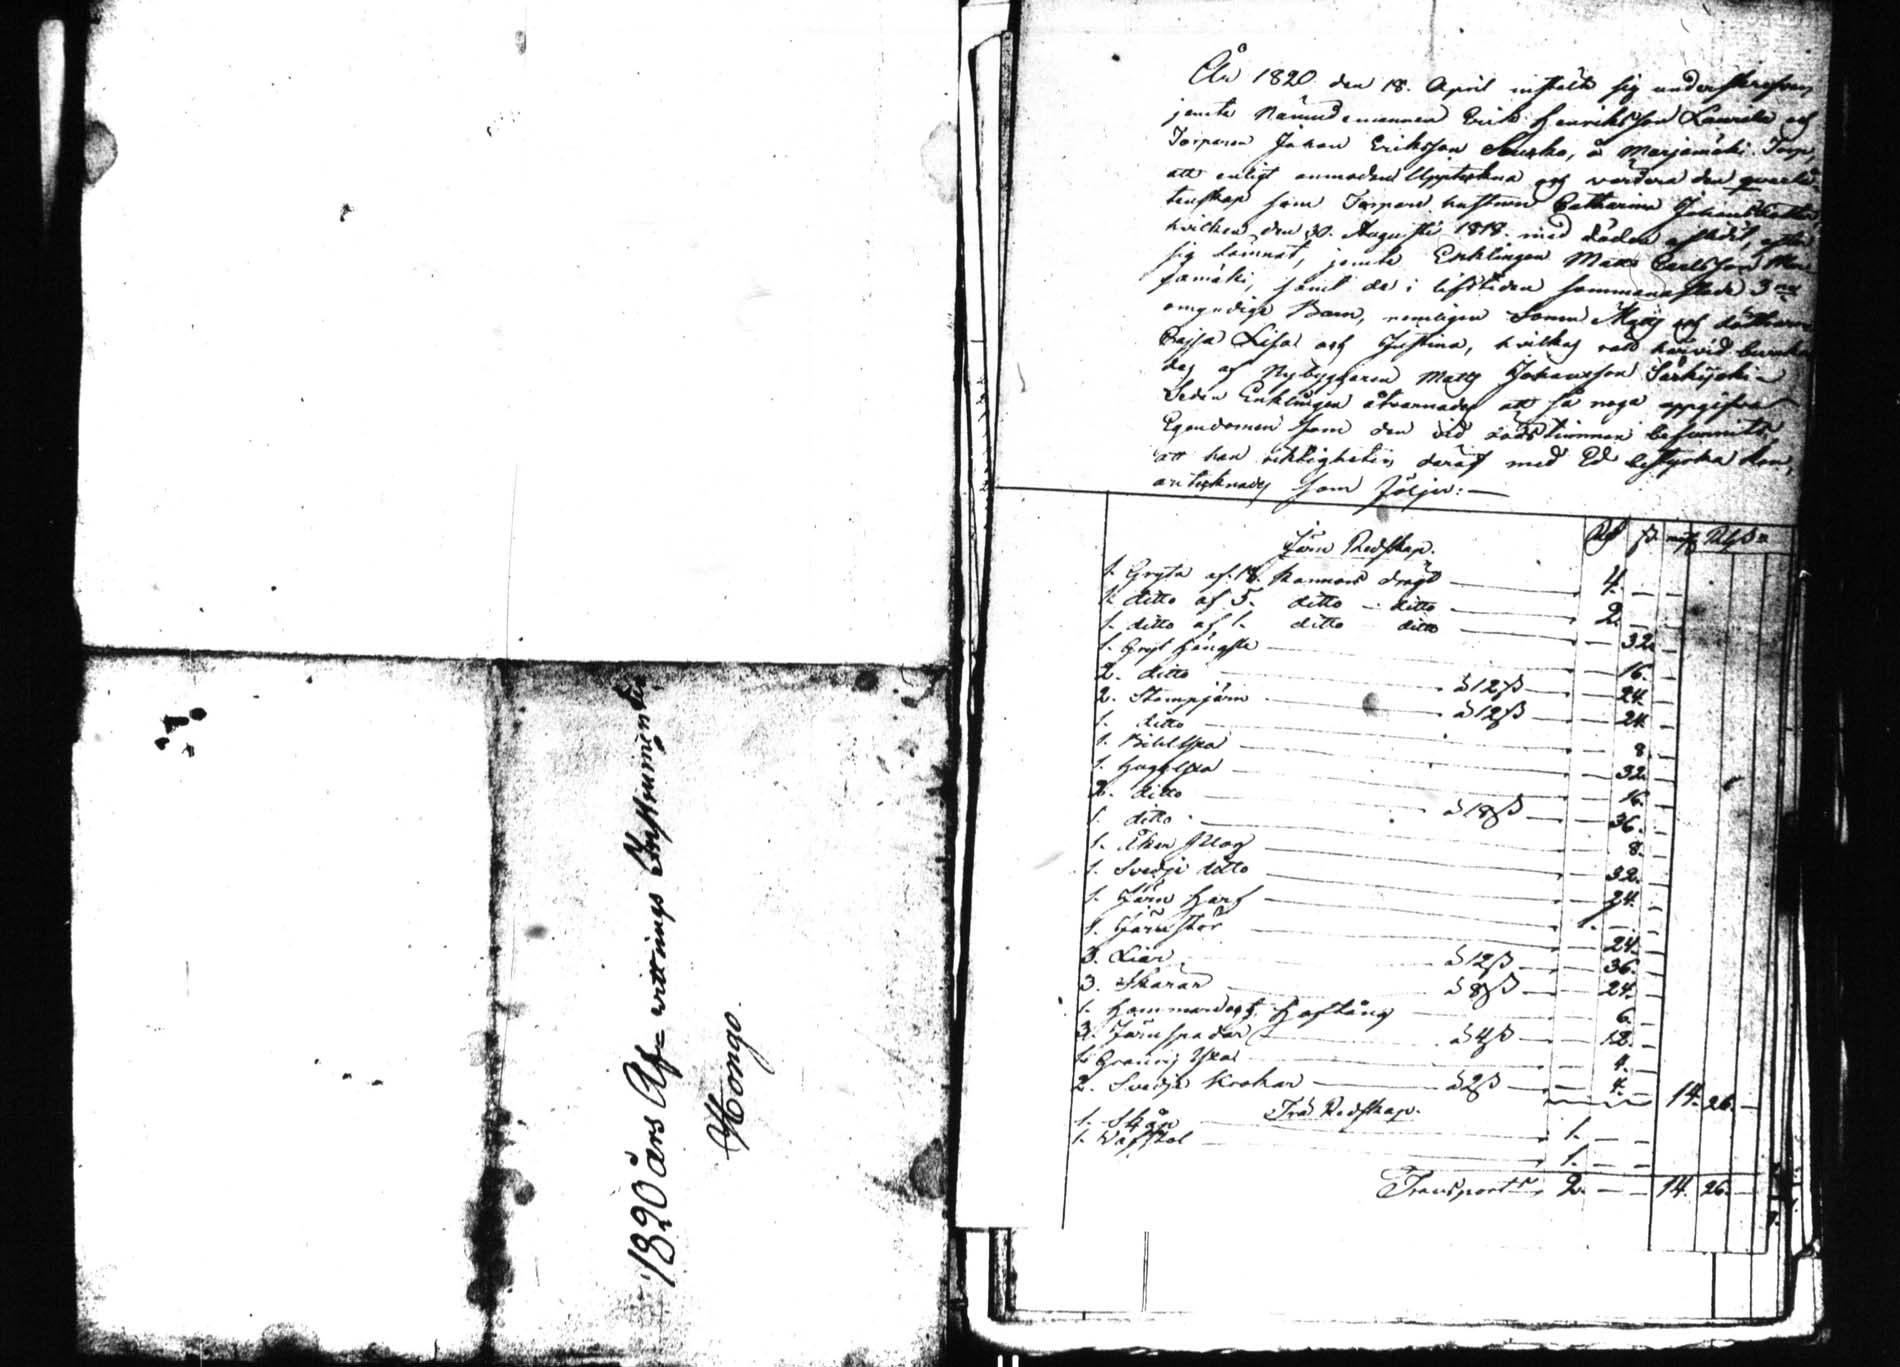 1820 års Af=wittrings Instrumenter
Hongo.
År 1820 den 18. April instälte sig underskrefven
jemte Nämndemannen Erik Henriksson Laurila och
Torparen Johan Eriksson Souko, å Marjamäki Torp,
att enligt anmodan Uppteckna och värdera den qvarlå-
tenskap som Torpare hustrun Catharina Johansdotter,
hvilken den 30. Augusti 1818. med döden afledit, efter
sig lämnat, jemte Enklingen Matts Carlsson Mar-
jamäki, samt de i lifstiden sammanaflade 3ne
omyndige Barn, nemligen Sonen Matts och döttrarne
Cajsa Lisa och Justina, hvilkas rätt härvid bevaka-
des af Nybyggaren Matts Johansson Särkijoki
Sedan Enklingen åtvarnades att så noga uppgifva
Egendomen som den vid dödstimman befunnits,
att han riktigheten deraf med Ed bestyrka kan,
antecknades som följer:—
Järn Redskap.
1. Gryta af 18. Kannors drägt — 4. — —
1. ditto af 5. ditto ditto — 2. — —
1. ditto af 1. ditto ditto — 32. —
1. Gryt hängsle — 16. —
2. ditto — à 12 ß — 24. —
2. Stampjärn — à 12 ß — 24. —
1. ditto — 8. —
1. Bihlyxa — 32. —
1. Huggyxa — 16. —
2. ditto — à 18 ß — 36. —
1. ditto — 8. —
1. Åker Plog — 32. —
1. Svedje ditto — 24. —
1. Järn Harf — 1. — —
1. Järn Stör — 24. —
3. Liar — à 12 ß — 36. —
3. Skäror — à 8 ß — 24. —
1. Hammare och Hoftång — 6. —
3. Järnspadar — à 4 ß — 12. —
1. — 4. —
2. Svedje Krokar — à 2 ß — 4. — 14. 26. —
Trä Redskap.
1. — 1. — —
1. Väfstol — 1. — —
Transport 2. — — 14. 26. —